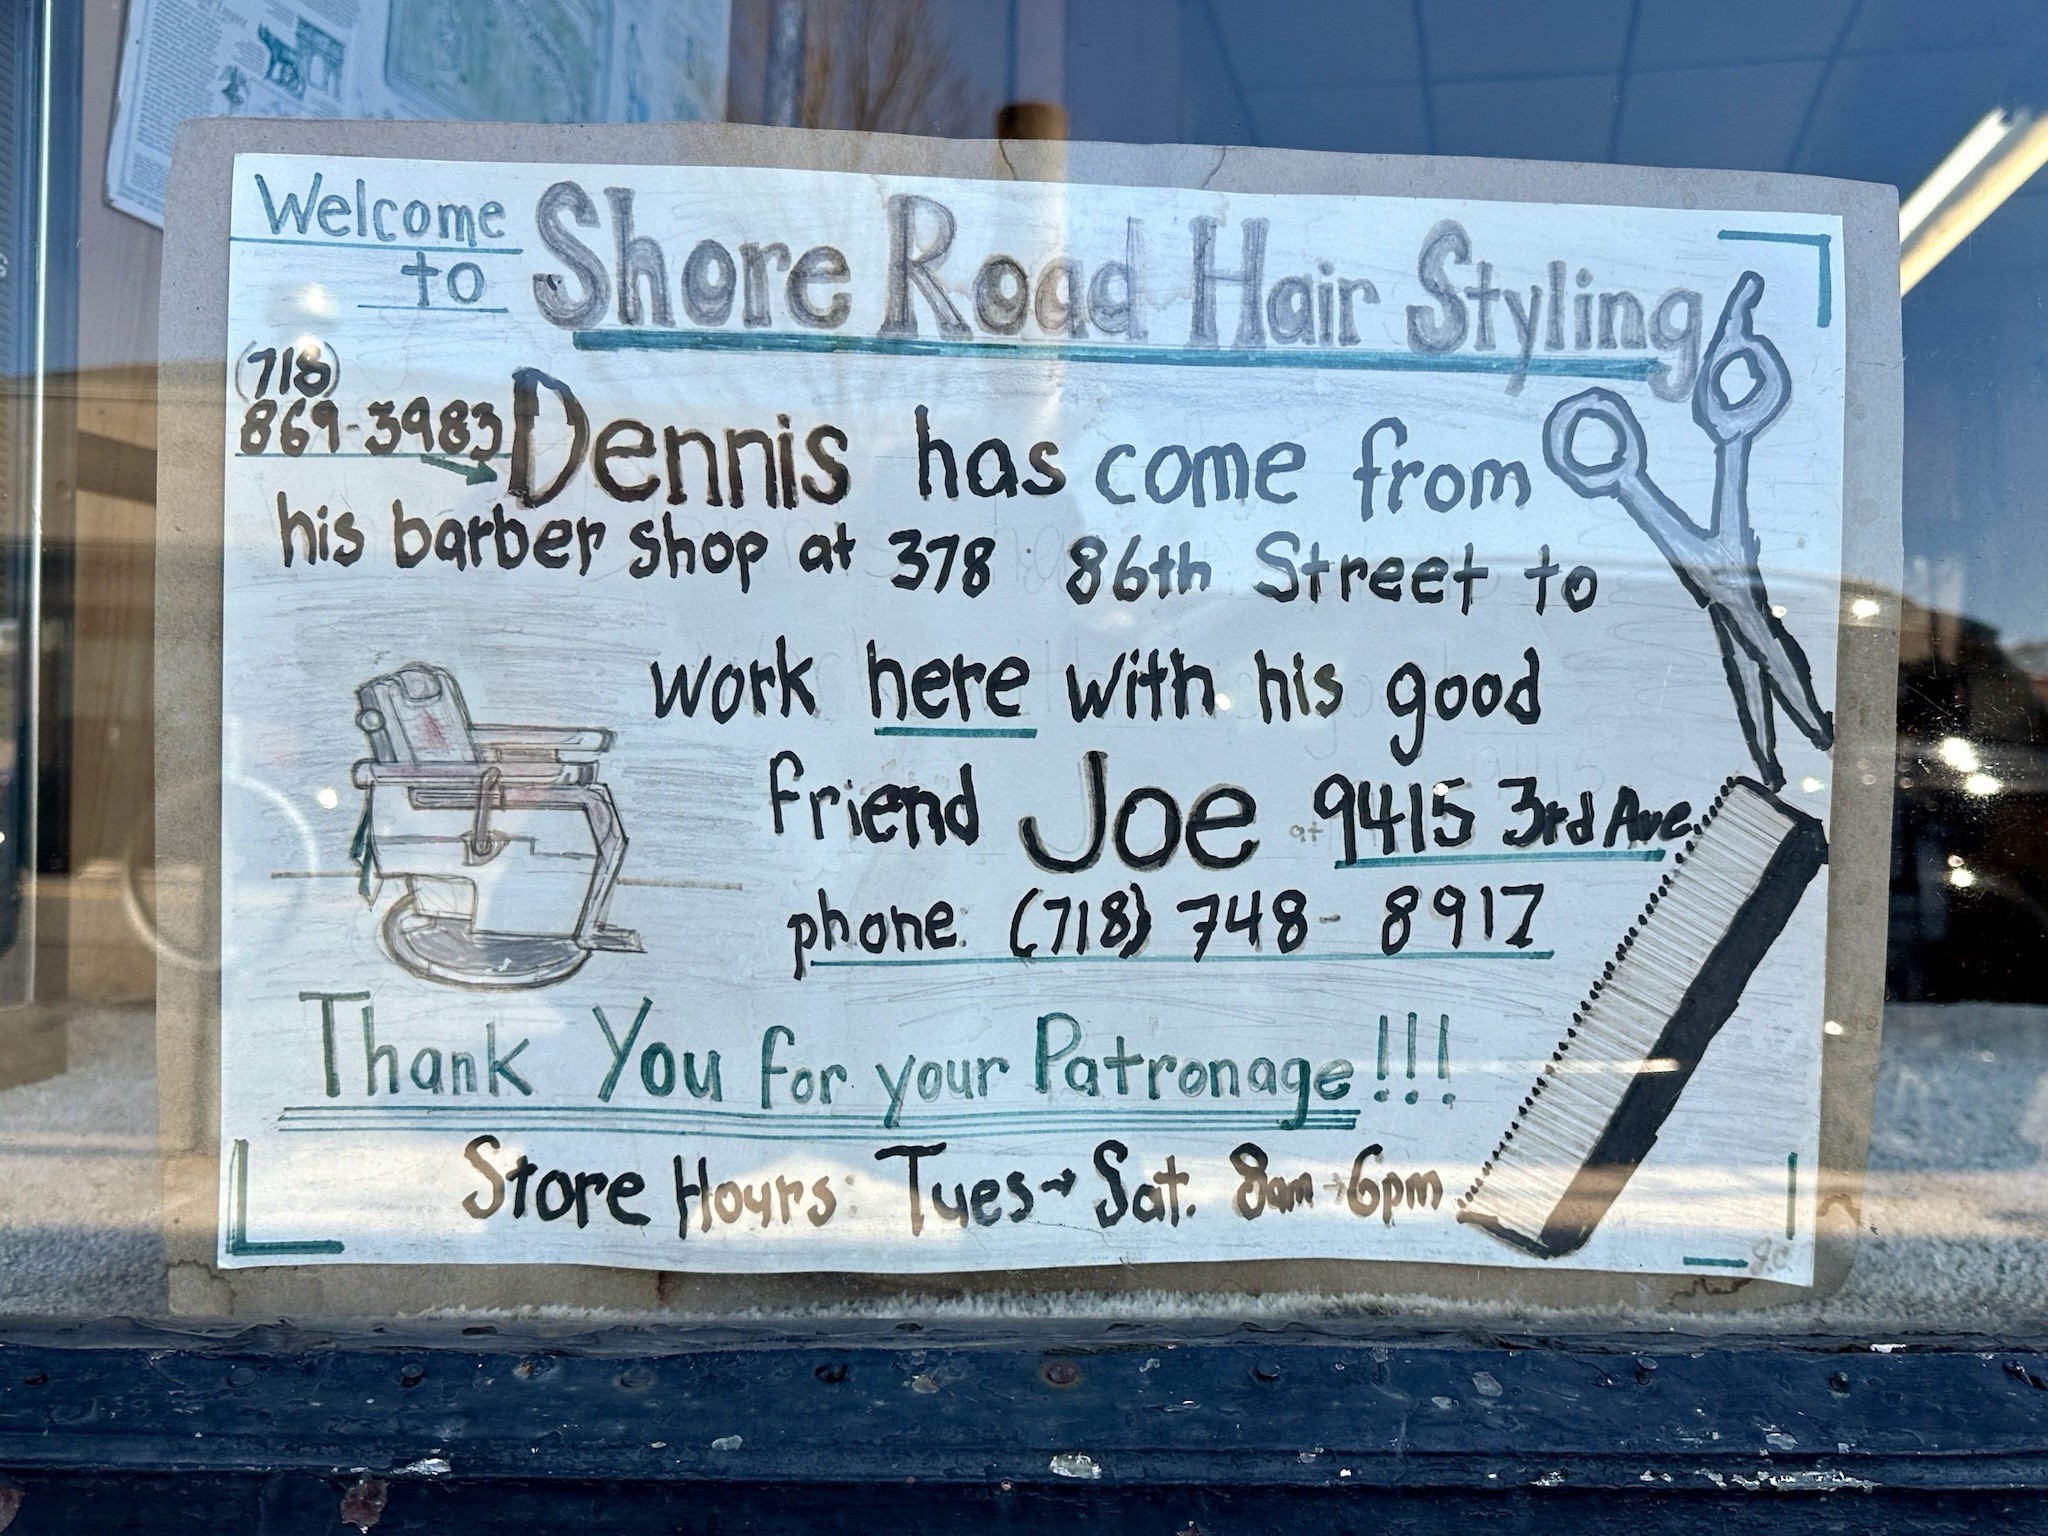 Welcome
to
Shore Road Hair Styling
(718)
869-3983
Dennis has come from
his barber shop at 378 86th Street to
work here with his good
friend Joe at 9415 3rd Ave.
phone: (718) 748-8917
Thank You for your Patronage!!!
Store Hours: Tues→Sat. 8am→6pm
J.C.